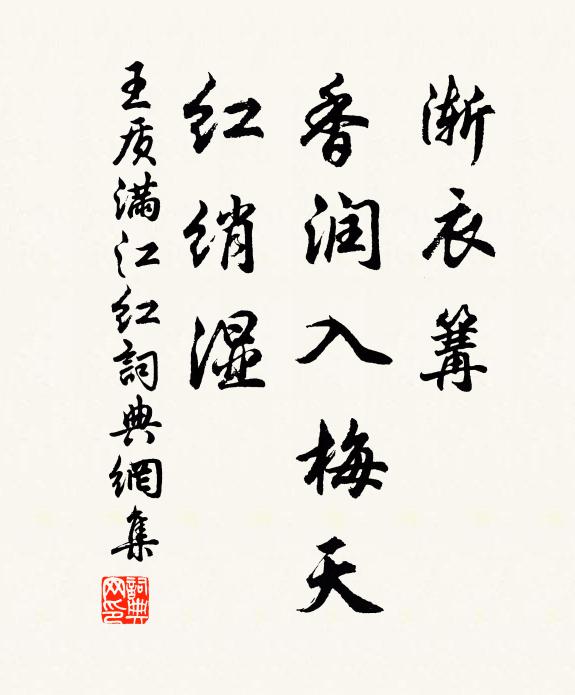 渐衣篝
香润入梅天
红绡湿
王质满江红詞典網集
詞典网印